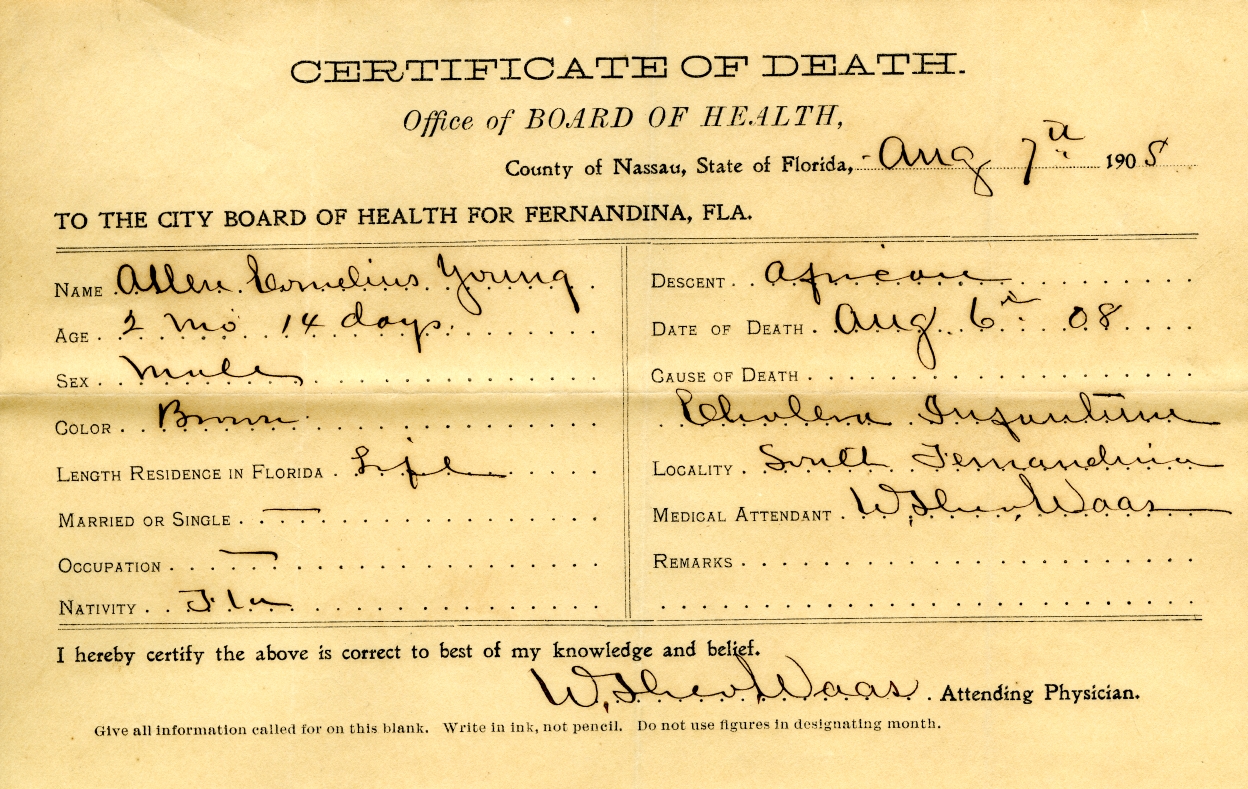 CERTIFICATE OF DEATH.
Office of BOARD OF HEALTH,
County of Nassau, State of Florida, Aug 7th 1908
TO THE CITY BOARD OF HEALTH FOR FERNANDINA, FLA.
NAME Allen Cornelius Young
AGE 2 mo 14 days
SEX Male
COLOR Brown
LENGTH RESIDENCE IN FLORIDA Life
MARRIED OR SINGLE —
OCCUPATION —
NATIVITY Fla
DESCENT African
DATE OF DEATH Aug 6th 08
CAUSE OF DEATH
Cholera Infantum
LOCALITY South Fernandina
MEDICAL ATTENDANT W. Theo. Waas
REMARKS
I hereby certify the above is correct to best of my knowledge and belief.
W. Theo. Waas. Attending Physician.
Give all information called for on this blank. Write in ink, not pencil. Do not use figures in designating month.